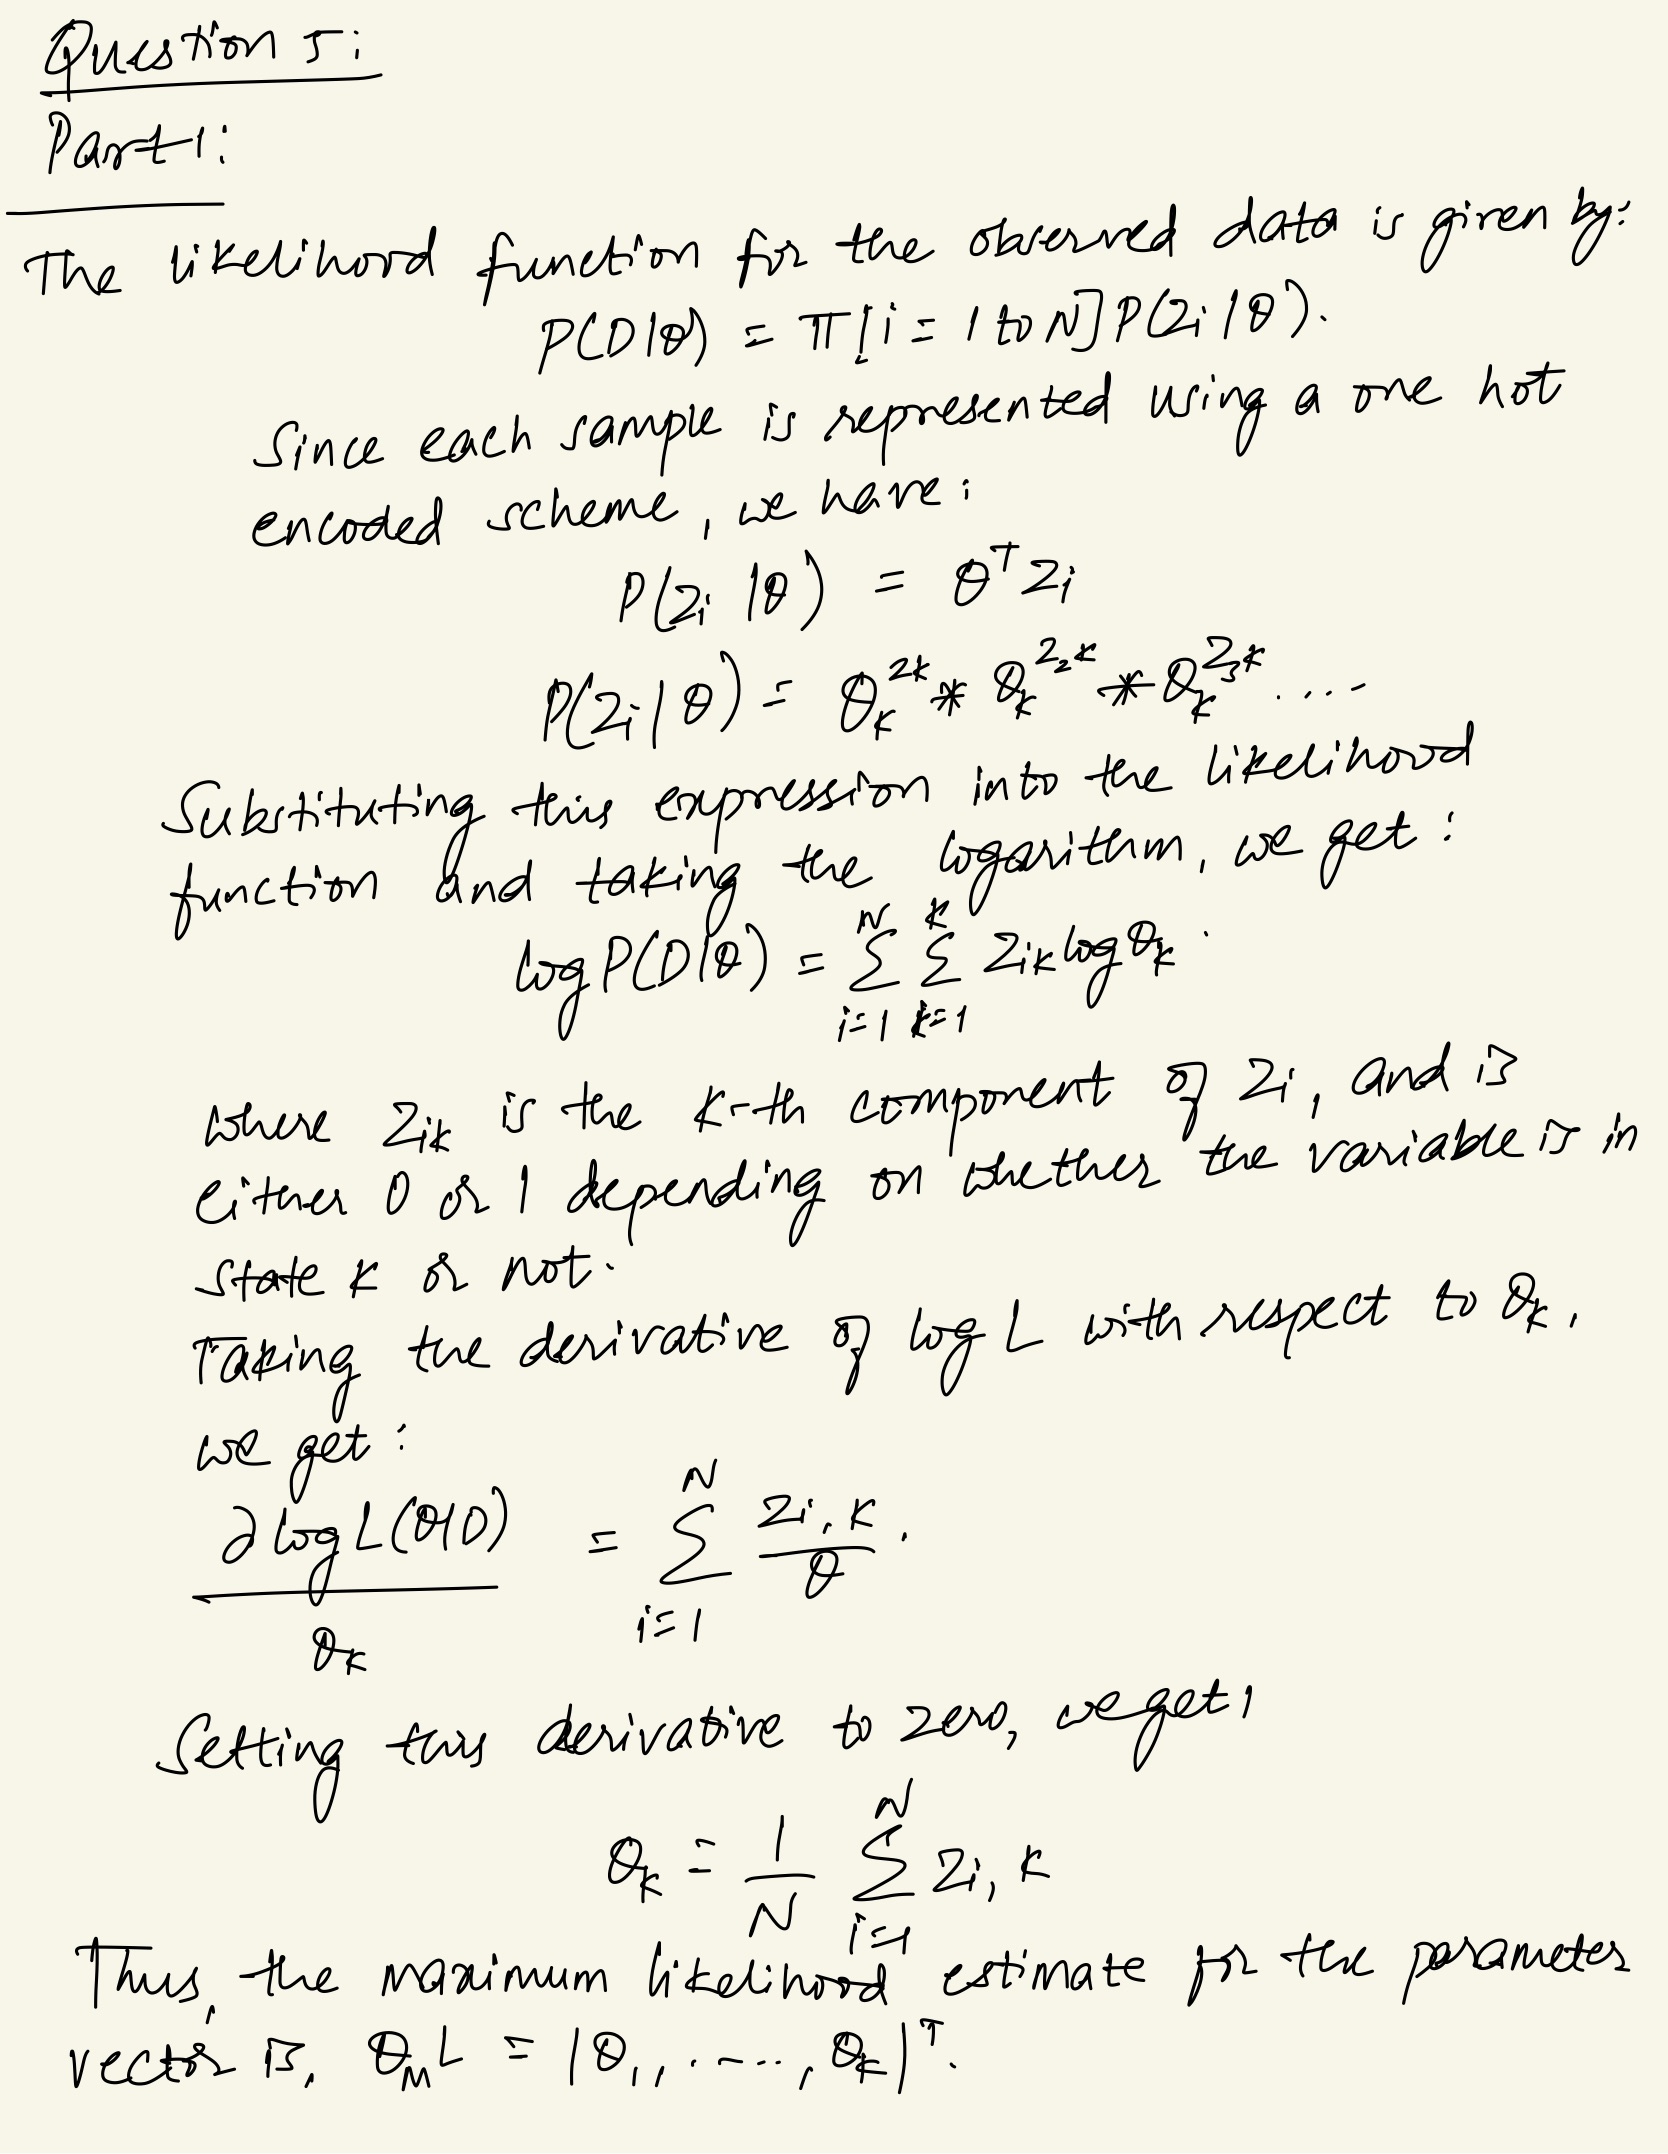 Question 5:
Part 1:
The likelihood function for the observed data is given by:
P(D|θ) = π[i = 1 to N] P(Zi|θ).
Since each sample is represented using a one hot
encoded scheme, we have:
P(Zi|θ) = θ^T Zi
P(Zi|θ) = θ_K^{ZK} * θ_K^{Z_2K} * θ_K^{Z_3K} ....
Substituting this expression into the likelihood
function and taking the logarithm, we get:
log P(D|θ) = Σ_{i=1}^{N} Σ_{k=1}^{K} Z_{ik} log θ_k.
where Z_{ik} is the K-th component of Zi, and is
either 0 or 1 depending on whether the variable is in
state K or not.
Taking the derivative of log L with respect to θ_k,
we get:
∂ log L(θ|D) / θ_K = Σ_{i=1}^{N} Zi,K / θ.
Setting this derivative to zero, we get,
θ_K = 1/N Σ_{i=1}^{N} Zi, K
Thus, the maximum likelihood estimate for the parameter
vector is, θ_M L = |θ_1, ....., θ_K|^T.